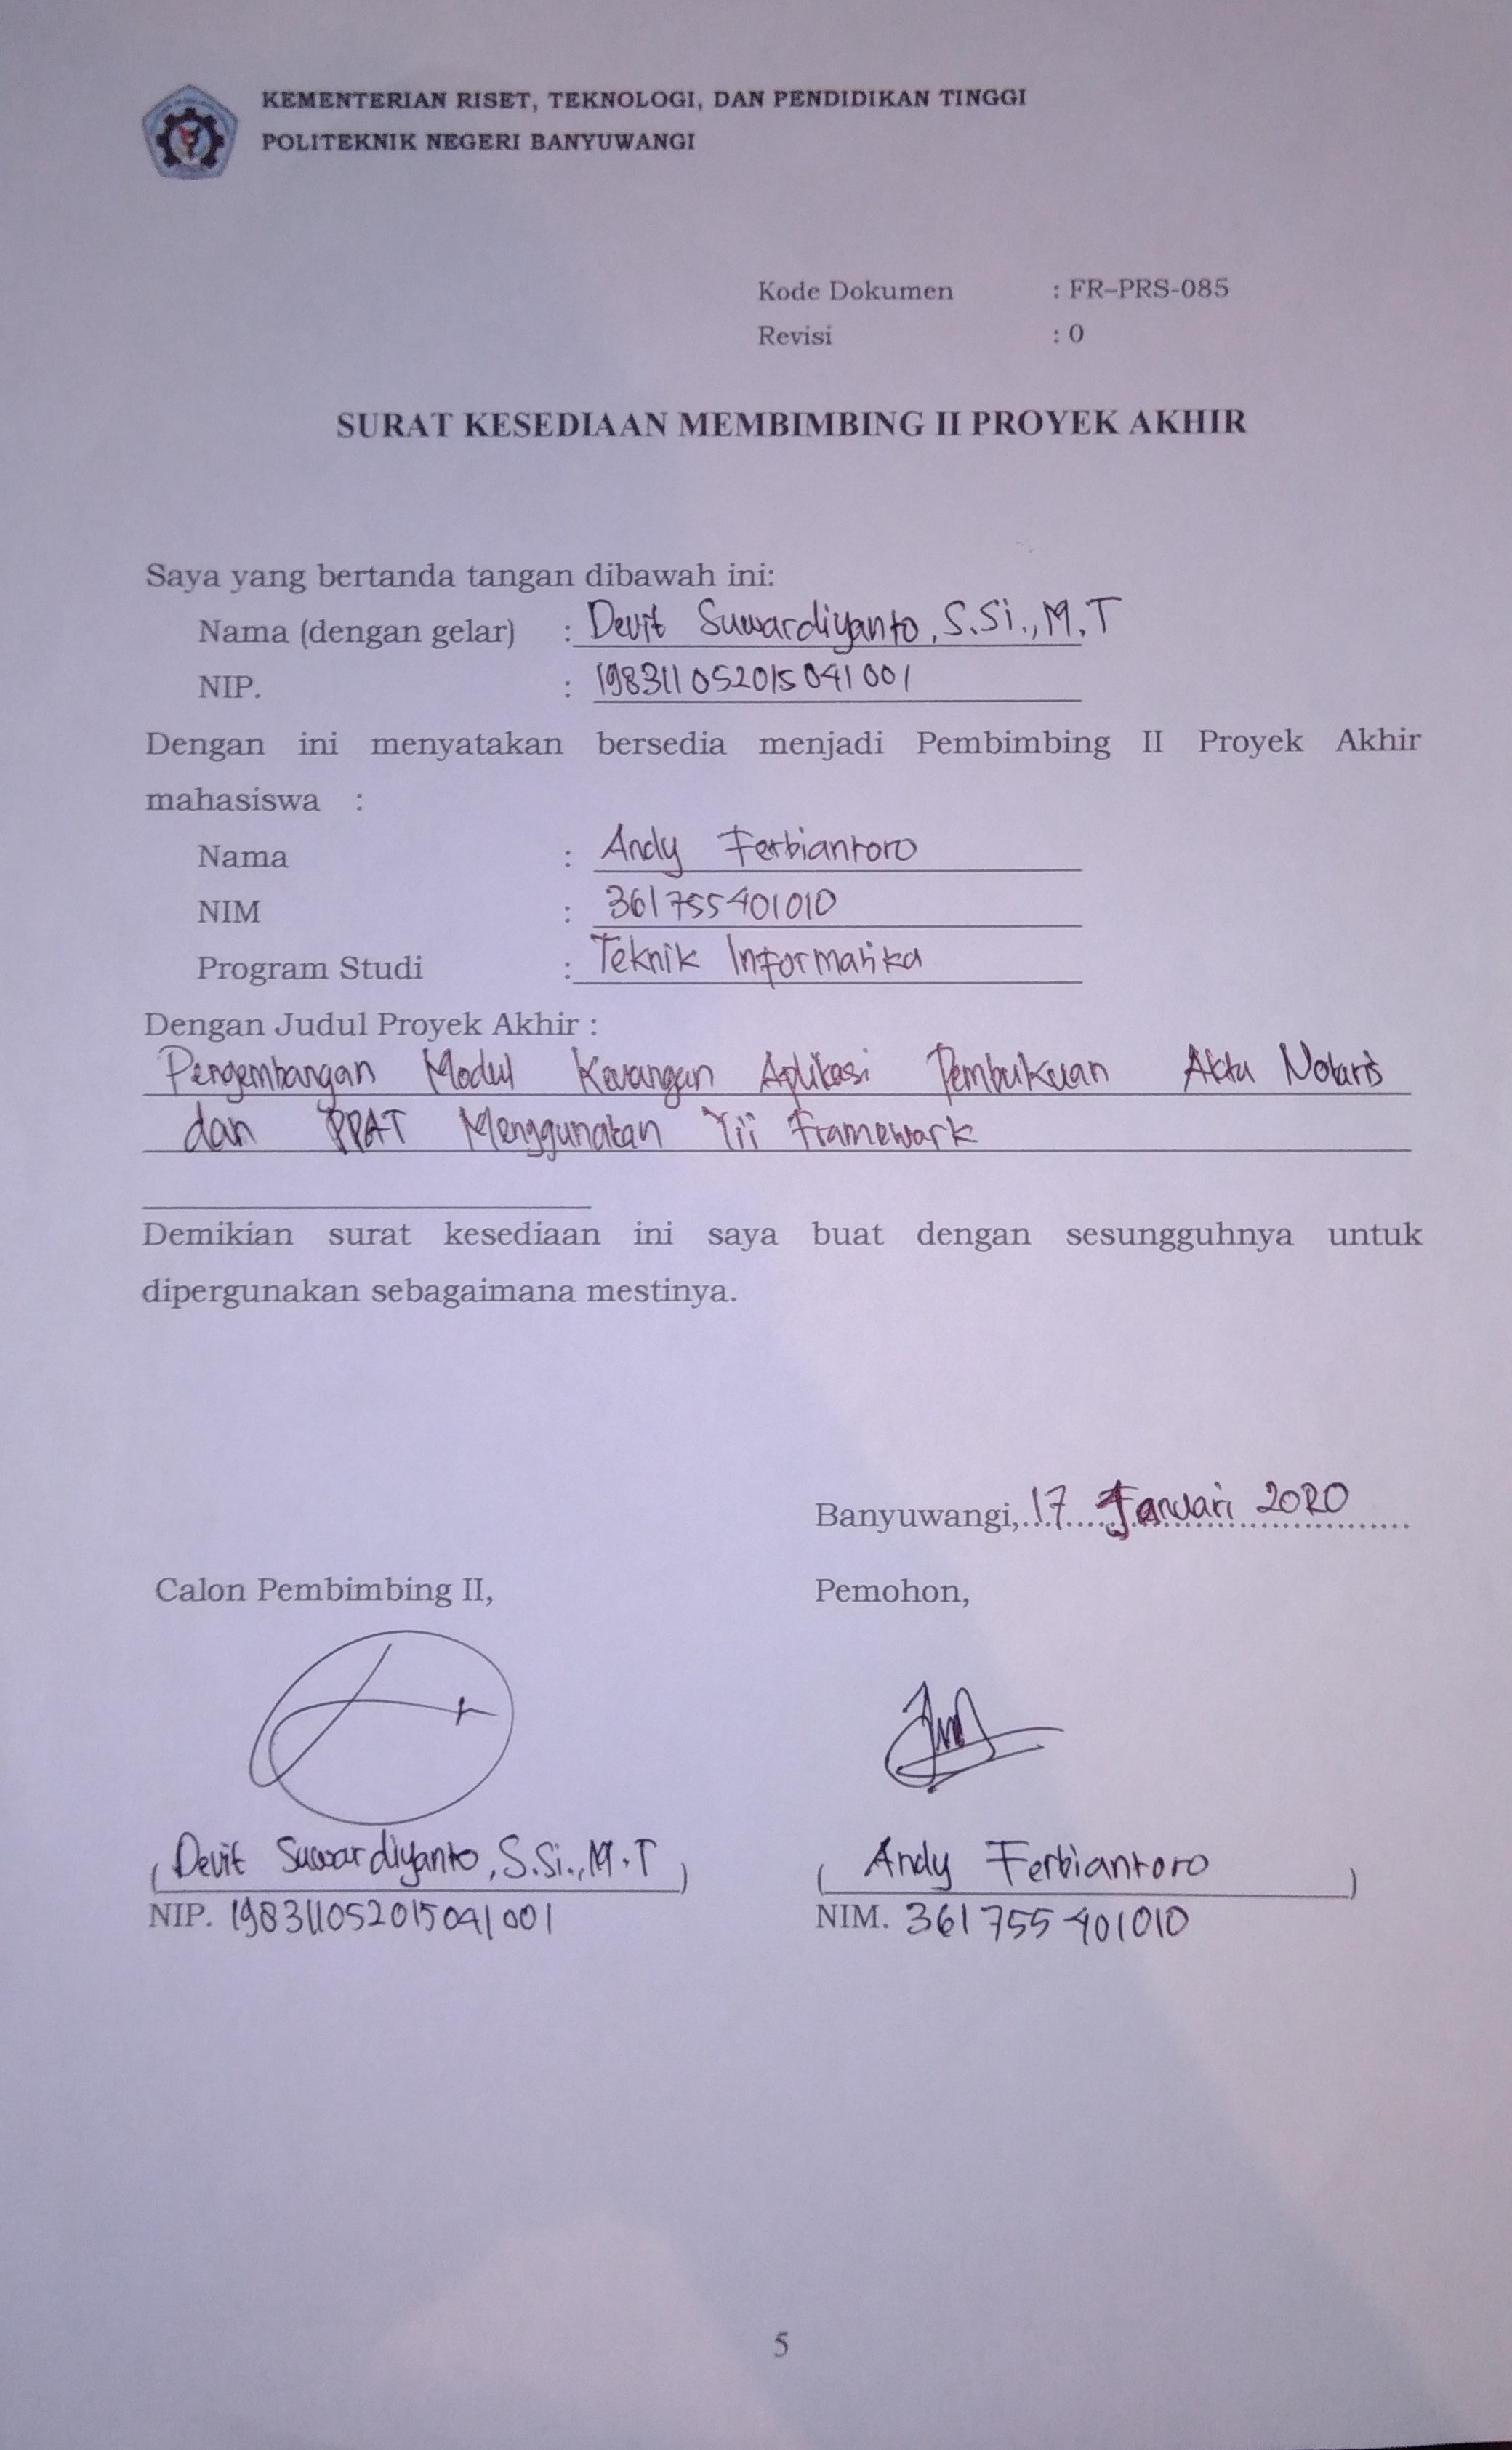 KEMENTERIAN RISET, TEKNOLOGI, DAN PENDIDIKAN TINGGI
POLITEKNIK NEGERI BANYUWANGI
Kode Dokumen : FR–PRS-085
Revisi : 0
SURAT KESEDIAAN MEMBIMBING II PROYEK AKHIR
Saya yang bertanda tangan dibawah ini:
Nama (dengan gelar) : Devit Suwardiyanto, S.Si., M.T
NIP. : 198311052015041001
Dengan ini menyatakan bersedia menjadi Pembimbing II Proyek Akhir
mahasiswa :
Nama : Andy Ferbiantoro
NIM : 361755401010
Program Studi : Teknik Informatika
Dengan Judul Proyek Akhir :
Pengembangan Modul Keuangan Aplikasi Pembukuan Akta Notaris
dan PPAT Menggunakan Yii Framework
Demikian surat kesediaan ini saya buat dengan sesungguhnya untuk
dipergunakan sebagaimana mestinya.
Banyuwangi, 17 Januari 2020
Calon Pembimbing II, Pemohon,
( Devit Suwardiyanto, S.Si., M.T ) ( Andy Ferbiantoro )
NIP. 198311052015041001 NIM. 361755401010
5